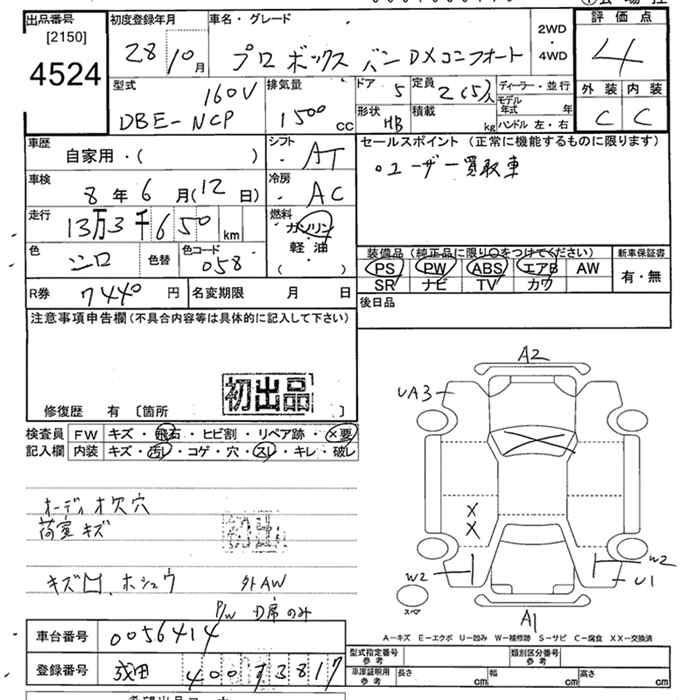 出品番号
[2150]
4524
初度登録年月
28 10月
車名・グレード
プロボックス バン DXコンフォート
2WD
・
4WD
評価点
4
型式
160V
DBE-NCP
排気量
1500 cc
ドア 5
定員 2(5)人
形状 HB
積載 kg
ディーラー・並行
モデル年式 年
ハンドル 左・右
外装 内装
C C
車歴
自家用・( )
シフト
・AT
セールスポイント (正常に機能するものに限ります)
○ユーザー買取車
車検
8年6月(12日)
冷房
・AC
走行
13万3千650km
燃料
ガソリン
軽・油
(・)
色
シロ
色替
色コード
058
装備品 (純正品に限り○をつけてください)
新車保証書
PS PW ABS エアB AW
SR ナビ TV カワ
有・無
R券 7440円
名変期限 月 日
後日品
注意事項申告欄(不具合内容等は具体的に記入して下さい)
初出品
修復歴 有 〔箇所 〕
検査員 FW キズ・飛石・ヒビ割・リペア跡・×要
記入欄 内装 キズ・汚レ・コゲ・穴・スレ・キレ・破レ
オーディオ欠穴
荷室キズ
初出
キズ凹、ホシュウ 外AW
P/W D席のみ
A2
UA3
X
X
W2
W2
U1
スペア
A1
A-キズ E-エクボ U-凹み W-補修跡 S-サビ C-腐食 XX-交換済
車台番号 0056414
登録番号 成田 400 サ 3817
型式指定番号 参考
類別区分番号 参考
車庫証明用 参考 長さ cm 幅 cm 高さ cm